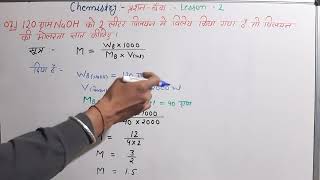 Chemistry - प्रश्न-बैंक: Lesson - 2
Q2) 120 ग्राम NaOH को 2 लीटर विलयन में विलेय किया गया है तो विलयन
की मोलरता ज्ञात कीजिए।
सूत्र - M = W_B × 1000 / M_B × V(ml)
दिया है:- W_B = 120
V 2000
M_B = 40 ग्राम
40 × 2000
M = 12 / 4×2
M = 3 / 2
M = 1.5